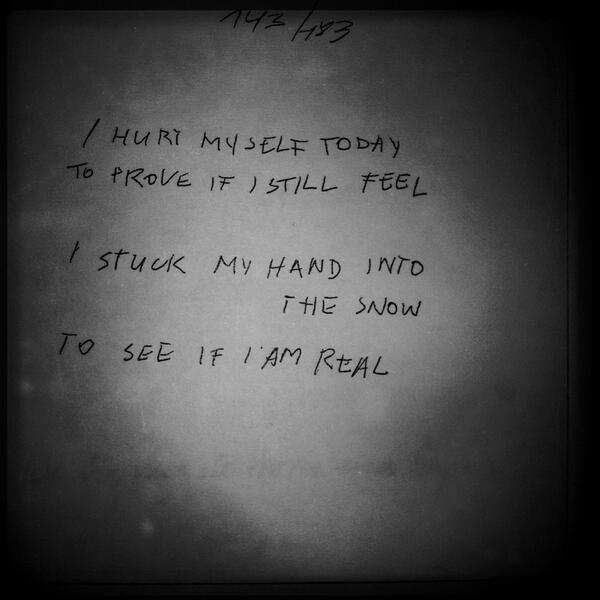 143/483
I HURT MYSELF TODAY
TO PROVE IF I STILL FEEL
I STUCK MY HAND INTO
THE SNOW
TO SEE IF I AM REAL